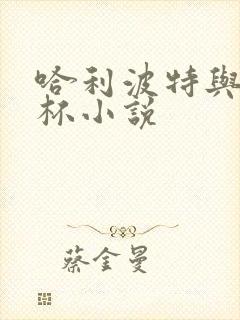 哈利波特與
杯小說
蔡金曼